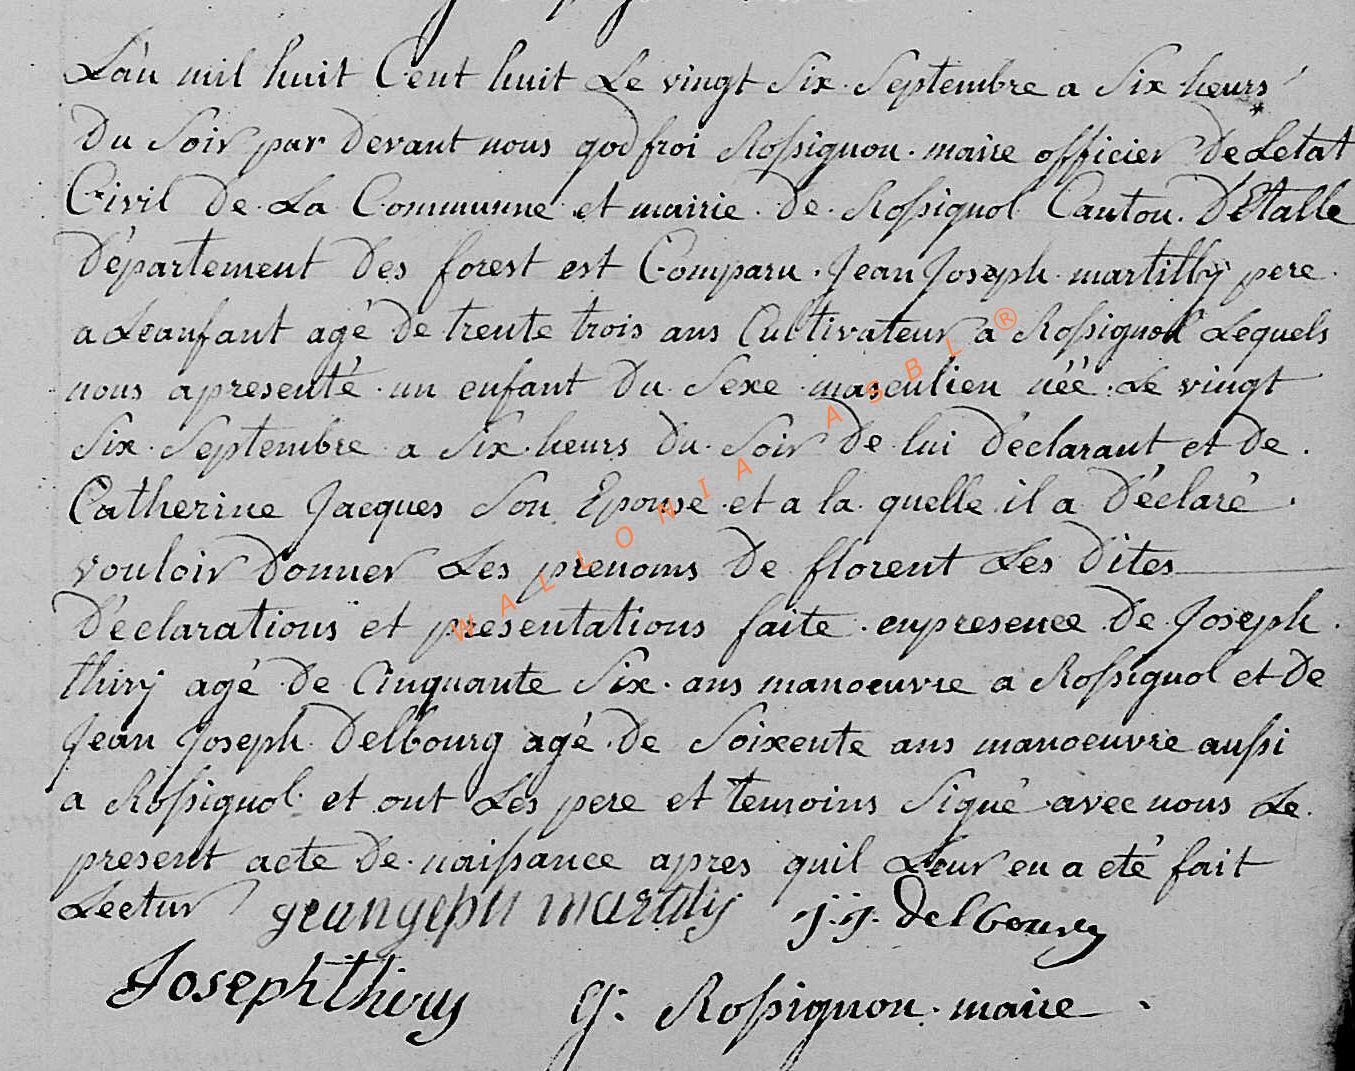 L'an mil huit Cent huit Le vingt Six Septembre a Six heurs
Du Soir par Devant nous godfroi Rossignon maire officier De Letat
Civil De La Communne et mairie De Rossignol Canton D'Etalle
Département Des forest est Comparu Jean Joseph martilly pere
a Leanfant agé De trente trois ans Cultivateur a Rossignol Lequels
nous apresenté un enfant Du Sexe masculien néé Le vingt
Six Septembre a Six heurs Du Soir De lui Déclarant et De
Catherine Jacques Son Epouse et a la quelle il a Déclaré
vouloir Donner Les prenoms De florent Les Dites
Déclarations et présentations faite enpresence De Joseph
thiry agé De Cinquante Six ans manoeuvre a Rossignol et De
Jean Joseph Delbourg agé De Soixente ans manoeuvre aussi
a Rossignol et ont Les pere et temoins Signé avec nous Le
present acte De naissance apres quil Leur en a eté fait
Lectur jeanjeph martilly j.j. Delbourg
Joseph thiry G. Rossignon maire
WALLONIA ASBL ®